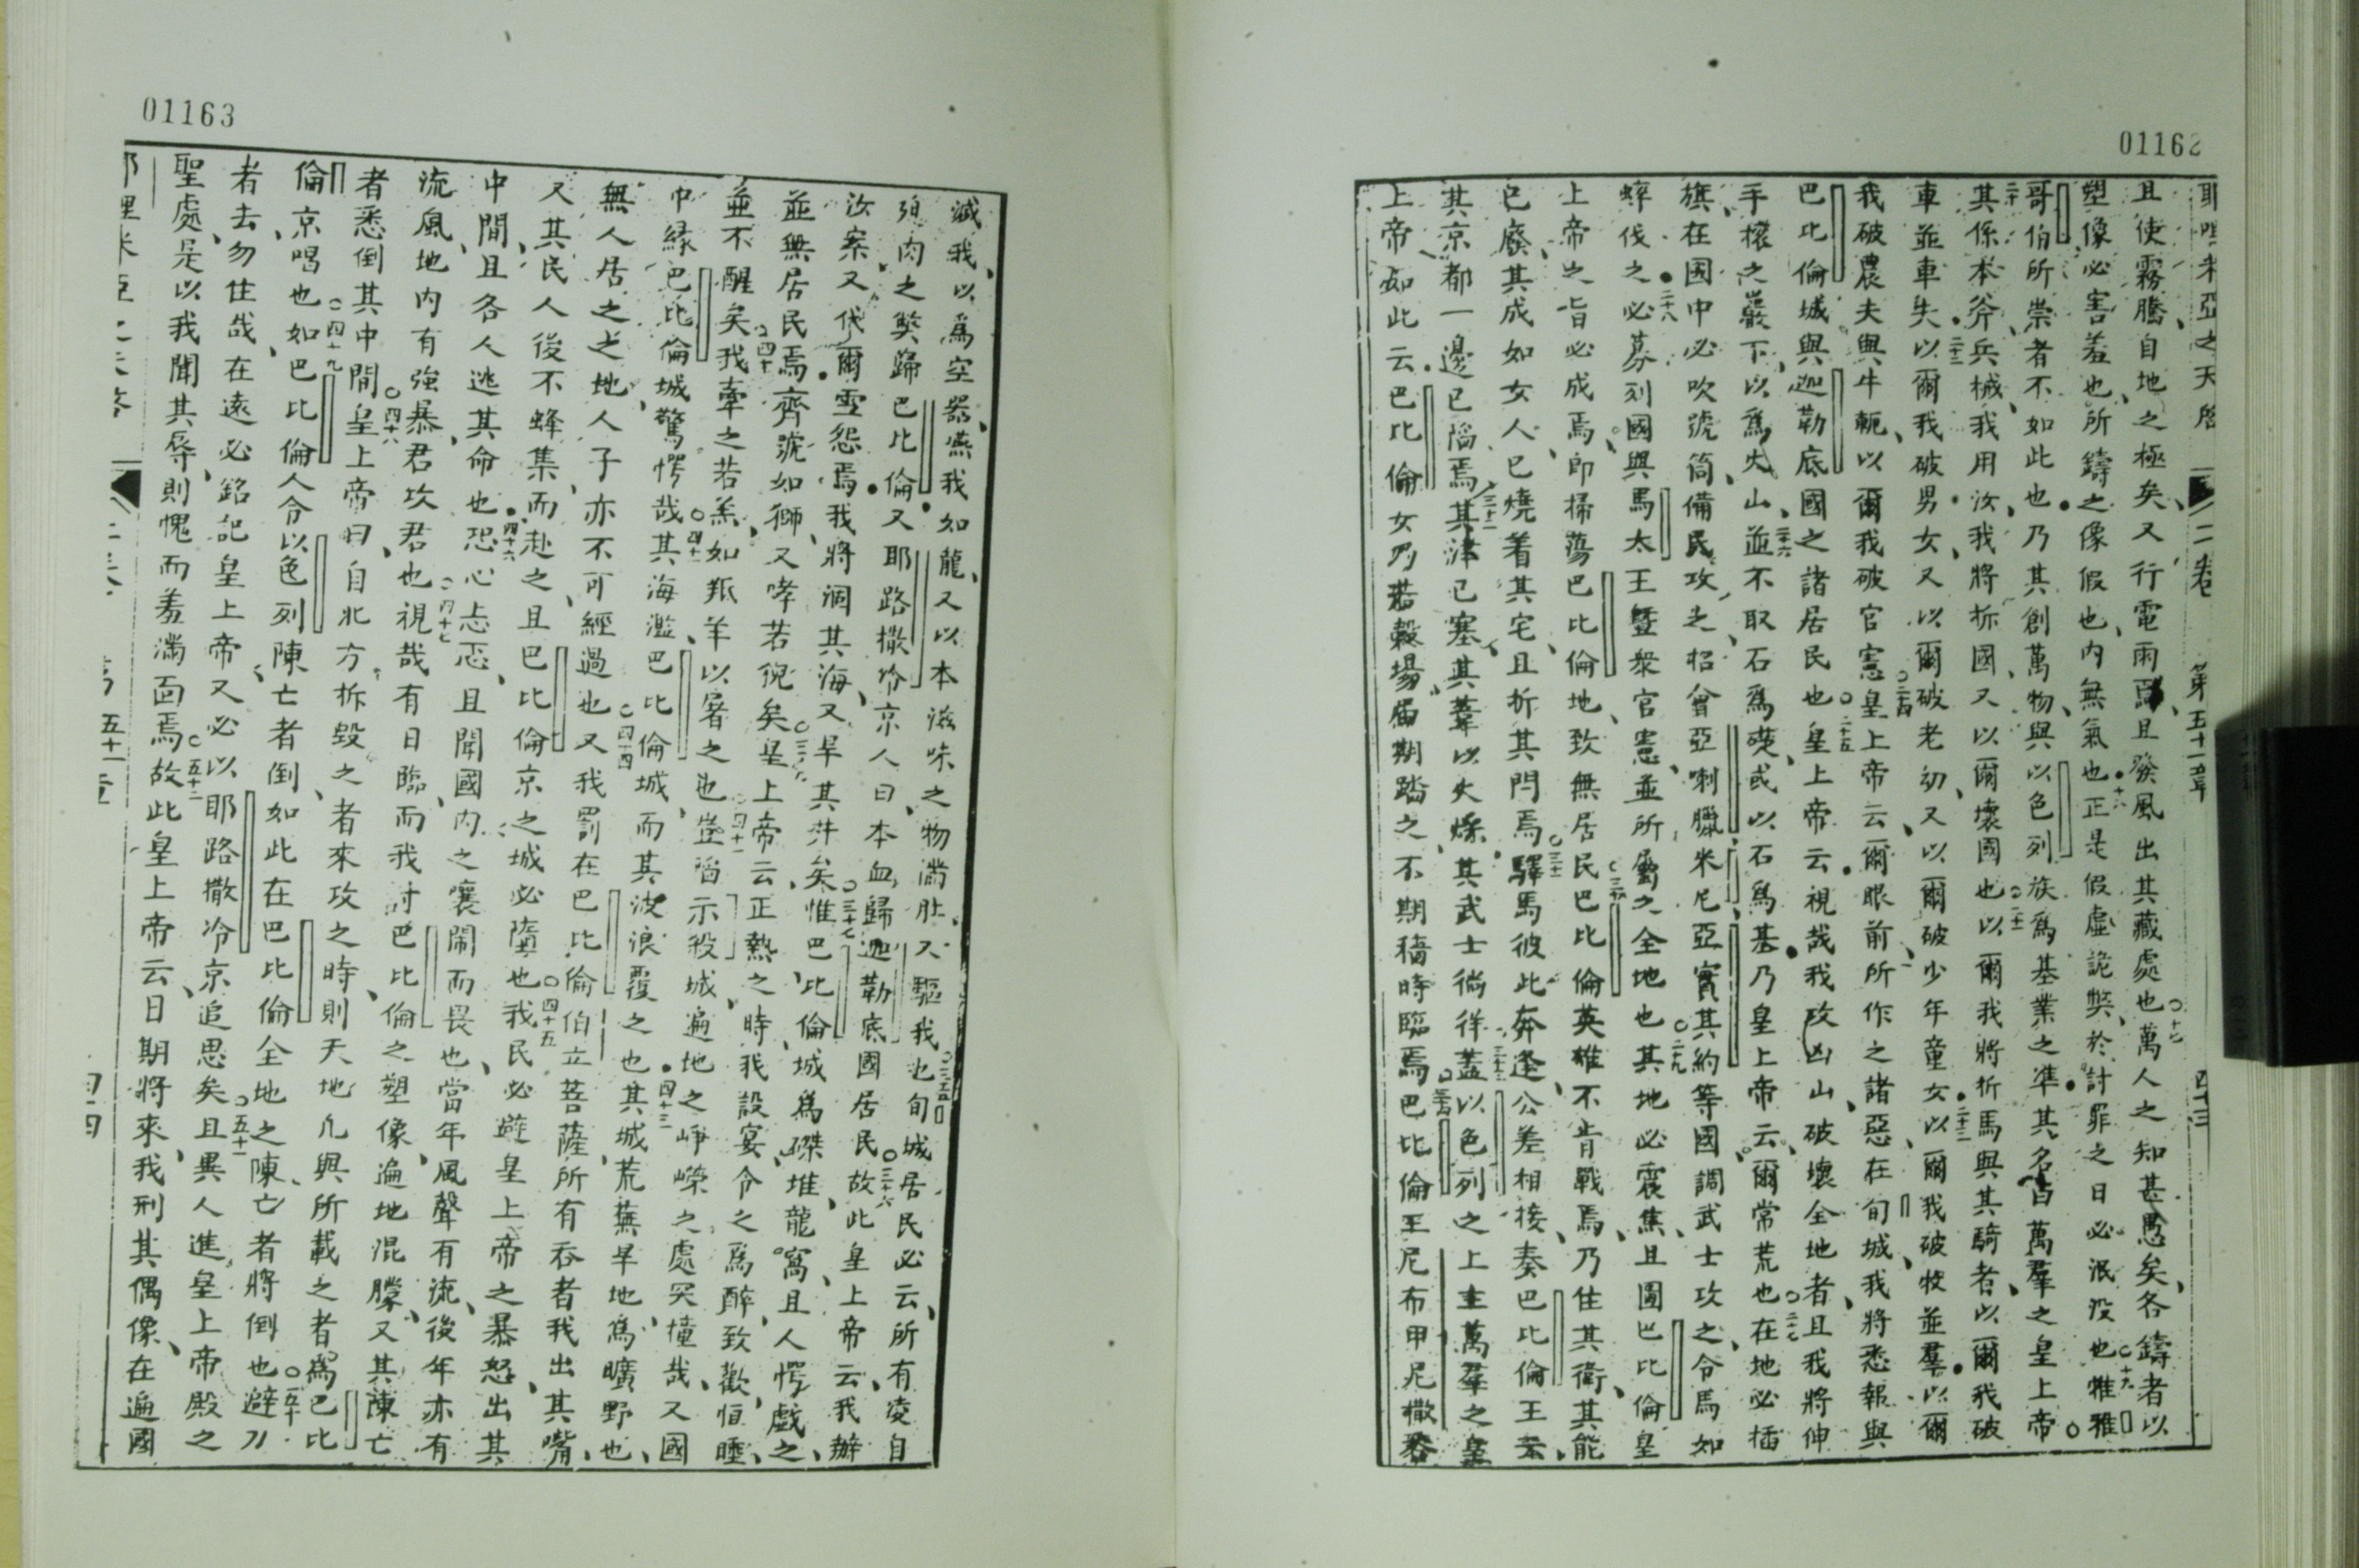 01162
耶哩米亞之天啓 二卷 第五十一章 四十三
且使霧騰自地之極矣又行電雨且發風出其藏處也十七萬人之知甚愚矣各鑄者以
塑像必害羞也所鑄之像假也內無氣也十八正是假虛詭獘於討罪之日必泯沒也十九惟雅
哥伯所崇者不如此也乃其創萬物與以色列族爲基業之準其名皆萬羣之皇上帝
二十其係本斧兵械我用汝我將折國又以爾壞國也二十一以爾我將折馬與其騎者以爾我破
車並車失二十二以爾我破男女又以爾破老幼又以爾破少年童女二十三以爾我破牧並羣以爾
我破農夫與牛軛以爾我破官憲二十四皇上帝云爾眼前所作之諸惡在旬城我將悉報與
巴比倫城與迦勒底國之諸居民也二十五皇上帝云視哉我攻凶山破壞全地者且我將伸
手擲之巖下以爲火山二十六並不取石爲礎或以石爲基乃皇上帝云爾常荒也二十七在地必插
旗在國中必吹號筒備民攻之招會亞喇臘米尼亞實其約等國調武士攻之令馬如
蟀伐之二十八必募列國與馬太王曁衆官憲並所屬之全地也二十九其地必震焦且圖巴比倫皇
上帝之旨必成焉卽掃蕩巴比倫地致無居民三十巴比倫英雄不肯戰焉乃住其衛其能
已廢其成如女人已燒着其宅且折其閂焉三十一驛馬彼此奔逢公差相接奏巴比倫王云
其京都一邊已陷焉三十二其津已塞其葦以火燥其武士徜徉三十三蓋以色列之上主萬羣之皇
上帝如此云巴比倫女乃若穀場屆期踏之不期穡時臨焉三十四巴比倫王尼布甲尼撒吞
01163
滅我以爲空器嚥我如龍又以本滋味之物滿肚又驅我也三十五旬城居民必云所有凌自
殉肉之獘歸巴比倫又耶路撒冷京人曰本血歸迦勒底國居民三十六故此皇上帝云我辦
汝案又代爾雪怨焉我將涸其海又旱其井矣三十七惟巴比倫城爲磔堆龍窩且人愕戲之
並無居民焉三十八齊號如獅又哮若猊矣三十九皇上帝云正熱之時我設宴令之爲醉致歡恒睡
並不醒矣四十我牽之若羔如羝羊以屠之也四十一豈陷示殺城遍地之崢嶸之處突撞哉又國
中緣巴比倫城驚愕哉四十二其海濫巴比倫城而其波浪覆之也四十三其城荒蕪旱地爲曠野也
無人居之地人子亦不可經過也四十四又我罰在巴比倫伯立菩薩所有吞者我出其嘴
又其民人後不蜂集而赴之且巴比倫京之城必墮也四十五我民必避皇上帝之暴怒出其
中間且各人逃其命也四十六恐心忐忑且聞國內之嚷鬧而畏也當年風聲有流後年亦有
流風地內有強暴君攻君也四十七視哉有日臨而我討巴比倫之塑像遍地混朦又其陳亡
者悉倒其中間四十八皇上帝曰自北方拆毀之者來攻之時則天地凢與所載之者爲巴比
倫京唱也四十九如巴比倫人令以色列陳亡者倒如此在巴比倫全地之陳亡者將倒也五十避刀
者去勿住哉在遠必銘記皇上帝又必以耶路撒冷京追思矣五十一且異人進皇上帝殿之
聖處是以我聞其辱則愧而羞滿面焉五十二故此皇上帝云日期將來我刑其偶像在遍國
耶哩米亞之天啓 二卷 第五十一章 四十四